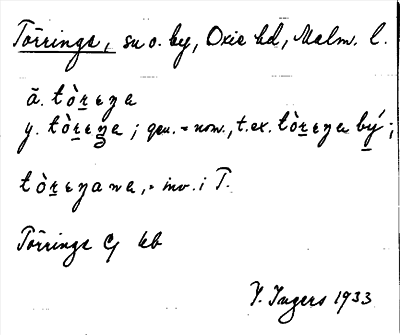 Törringe, su o. by, Oxie hd, Malm. l.
ā. tòrɛŋa
y. tòrɛŋa; gen. = nom., t.ex. tòrɛŋa bý;
tòrɛŋana, = inv. i T.
Törringe C, kb
Y. Ingers 1933